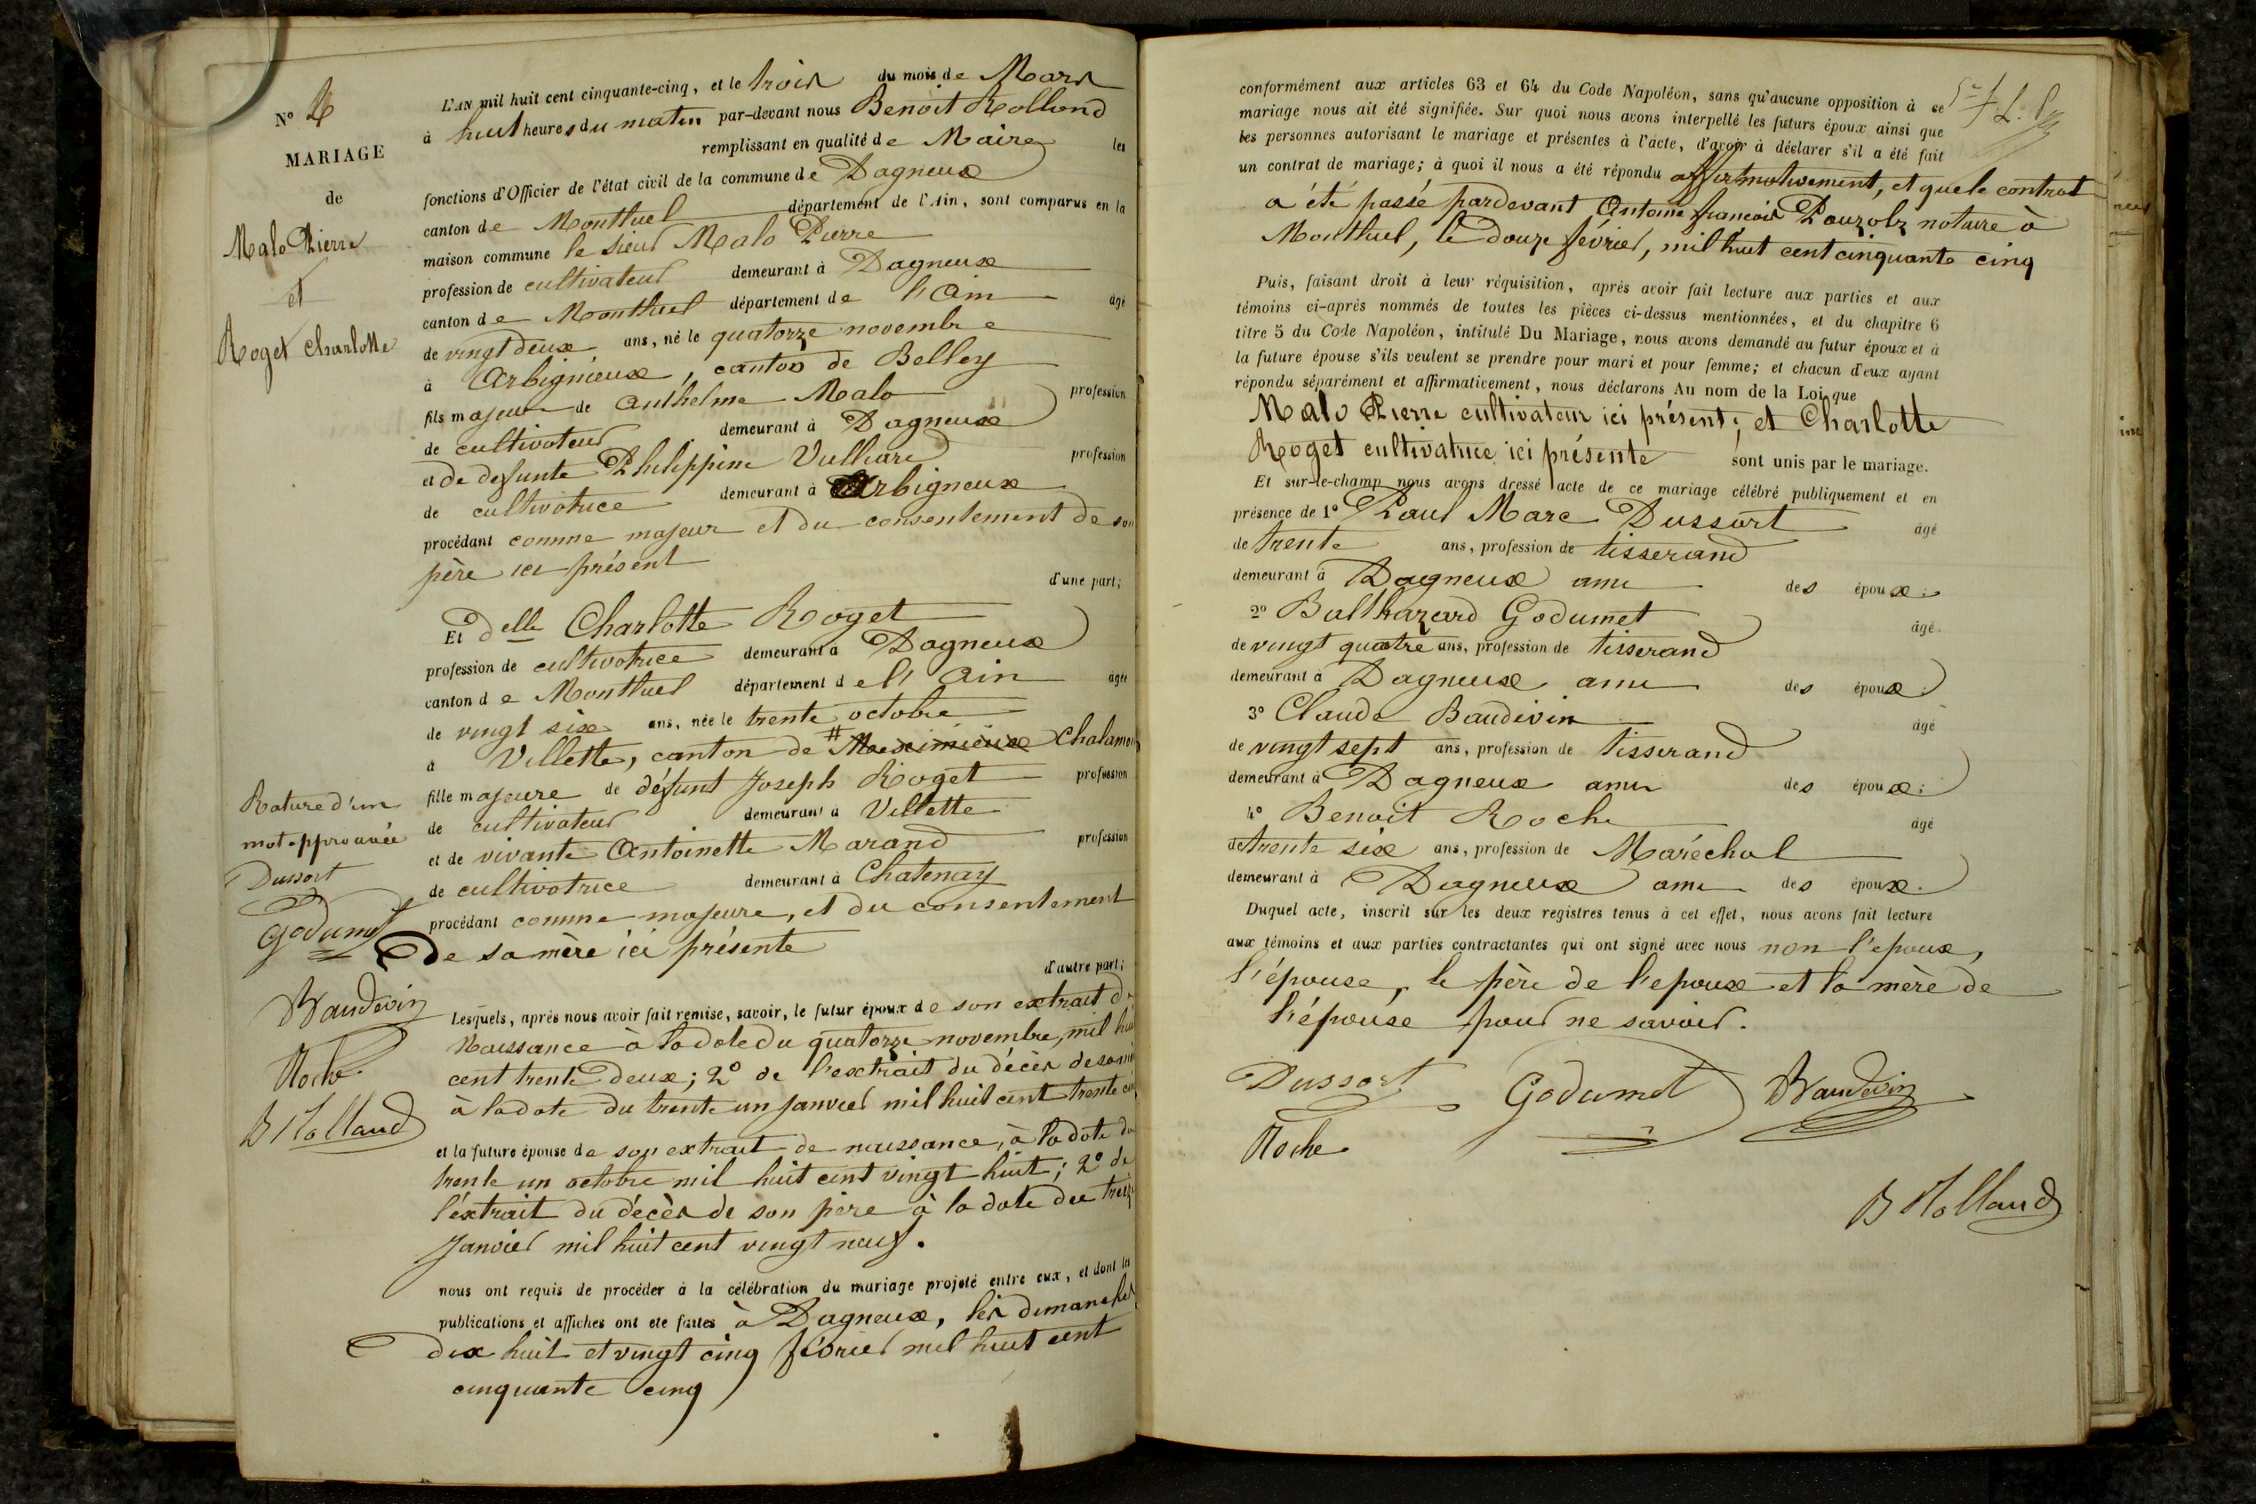 N° 2
MARIAGE
de
Malo Pierre
et
Roget Charlotte
L'AN mil huit cent cinquante-cinq, et le trois du mois de Mars
à huit heures du matin par-devant nous Benoit Rolland
remplissant en qualité de Maire les
fonctions d'Officier de l'état civil de la commune de Dagneux
canton de Montluel département de l'Ain, sont comparus en la
maison commune le sieur Malo Pierre
profession de cultivateur demeurant à Dagneux
canton de Montluel département de l'Ain âgé
de vingt deux ans, né le quatorze novembre
à Arbignieux, canton de Belley
fils majeur de Anthelme Malo profession
de cultivateur demeurant à Dagneux
et de defunte Philippine Vulliard profession
de cultivatrice demeurant à Arbigneux
procédant comme majeur et du consentement de son
père ici présent
d'une part;
Et delle Charlotte Roget
profession de cultivatrice demeurant à Dagneux
canton de Montluel département de l'Ain âgée
de vingt six ans, née le trente octobre
à Villette, canton de # Maximieux Chalamon
fille majeure de défunt Joseph Roget profession
de cultivateur demeurant à Villette
et de vivante Antoinette Marand profession
de cultivatrice demeurant à Chatenay
procédant comme majeure, et du consentement
De sa mère ici présente
d'autre part;
Rature d'un
mot approuvée
Dussort
Godumet
Baudevin
Roche
B Rolland
Lesquels, après nous avoir fait remise, savoir, le futur époux de son extrait d
Naissance à la date du quatorze novembre, mil hui
cent trente Deux; 2° de l'extrait du décès de sa m
à la date du trente un janvier mil huit cent trente
et la future épouse de son extrait de naissance, à la date du
trente un octobre mil huit cent vingt huit; 2° de
l'éxtrait du décès de son père à la date du treize
Janvier mil huit cent vingt neuf.
nous ont requis de procéder à la célébration du mariage projeté entre eux, et dont les
publications et affiches ont ete faites à Dagneux, les dimanches
dix huit et vingt cinq février mil huit cent
cinquante cinq
conformément aux articles 63 et 64 du Code Napoléon, sans qu'aucune opposition à se
mariage nous ait été signifiée. Sur quoi nous avons interpellé les futurs époux ainsi que
les personnes autorisant le mariage et présentes à l'acte, d'avoir à déclarer s'il a été fait
un contrat de mariage; à quoi il nous a été répondu affirmativement, et que le contrat
a été passé pardevant Antoine françois Pouzolz notaire à
Montluel, le douze février, mil huit cent cinquante cinq
Puis, faisant droit à leur réquisition, après avoir fait lecture aux parties et aux
témoins ci-après nommés de toutes les pièces ci-dessus mentionnées, et du chapitre 6
titre 5 du Code Napoléon, intitulé Du Mariage, nous avons demandé au futur époux et à
la future épouse s'ils veulent se prendre pour mari et pour femme; et chacun d'eux ayant
répondu séparément et affirmativement, nous déclarons Au nom de la Loi que
Malo Pierre cultivateur ici présent; et Charlotte
Roget cultivatrice ici présente sont unis par le mariage.
Et sur-le-champ nous avons dressé acte de ce mariage célébré publiquement et en
présence de 1° Paul Marc Dussort âgé
de trente ans, profession de tisserand
demeurant à Dagneux ami des époux;
2° Balthazard Godumet âgé
de vingt quatre ans, profession de tisserand
demeurant à Dagneux ami des époux;
3° Claude Baudivin âgé
de vingt sept ans, profession de tisserand
demeurant à Dagneux ami des époux;
4° Benoit Roche âgé
de trente six ans, profession de Maréchal
demeurant à Dagneux ami des époux.
Duquel acte, inscrit sur les deux registres tenus à cet effet, nous avons fait lecture
aux témoins et aux parties contractantes qui ont signé avec nous non l'epoux,
l'épouse, le père de l'epoux et la mère de
l'épouse pour ne savoir.
Dussort Godumet Baudevin
Roche
B Rolland